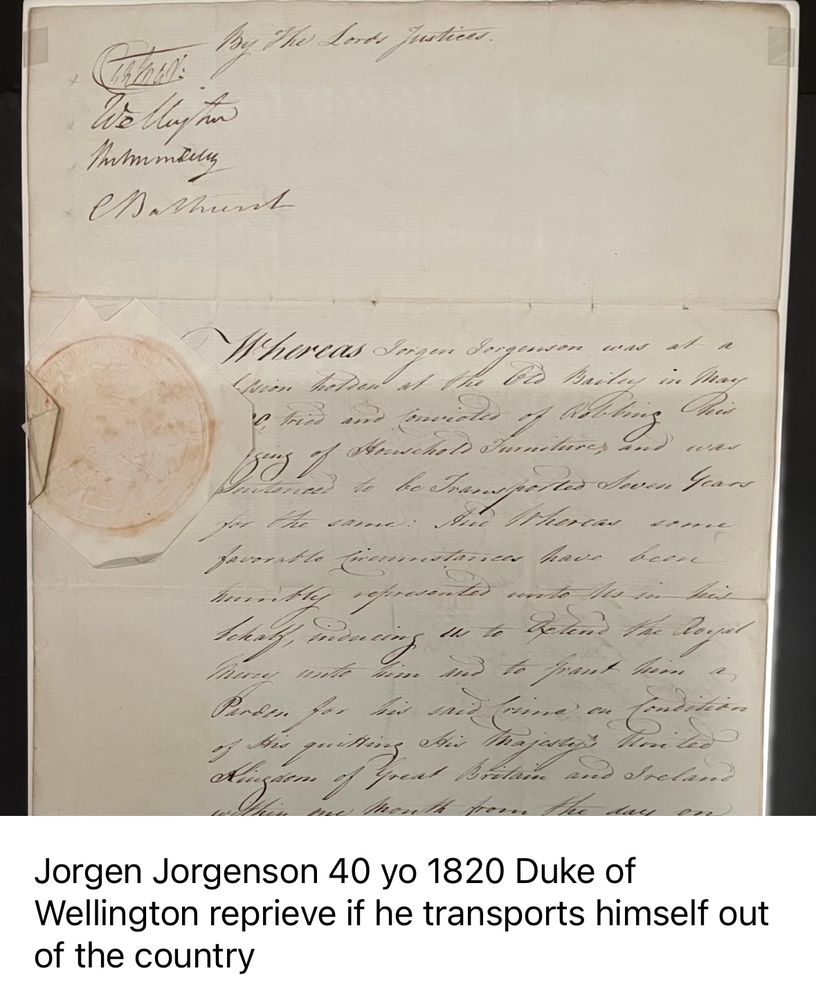 By The Lords Justices.
Wellington
C Bathurst
Whereas Jorgen Jorgenson was at a
Session holden at the Old Bailey in May
tried and Convicted of Robbing his
of Household Furniture, and was
Sentenced to be Transported Seven Years
for the same: And Whereas some
favorable Circumstances have been
humbly represented unto Us in his
behalf, inducing us to Extend the Royal
Mercy unto him and to Grant him a
Pardon for his said Crime on Condition
of His quitting His Majesty's United
Kingdom of Great Britain and Ireland
within one Month from the day on
Jorgen Jorgenson 40 yo 1820 Duke of
Wellington reprieve if he transports himself out
of the country